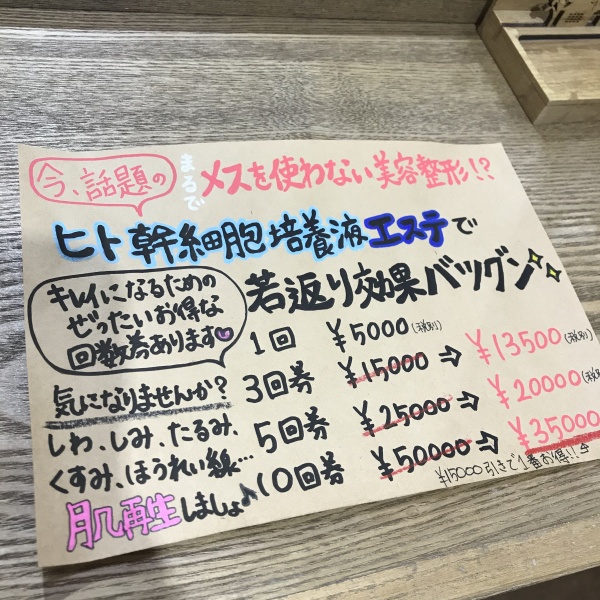 今、話題の
まるで
メスを使わない美容整形!?
ヒト幹細胞培養液エステで
若返り効果バツグン
キレイになるための
ぜったいお得な
回数券あります
1回 ¥5000(税別)
3回券 ¥15000 ⇒ ¥13500(税別)
5回券 ¥25000 ⇒ ¥20000(税別)
10回券 ¥50000 ⇒ ¥35000
¥15000引きで1番お得!!
気になりませんか?
しわ、しみ、たるみ、
くすみ、ほうれい線…
肌再生しましょ♪